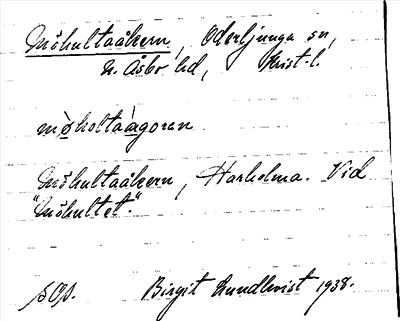 Mökultaåkern, Oderljunga sn,
N. Åsbo hd, Krist. l.
møkoltaågoren
Mökultaåkern, Harholma. Vid
"Mökultet."
Birgit Lundkvist 1938.